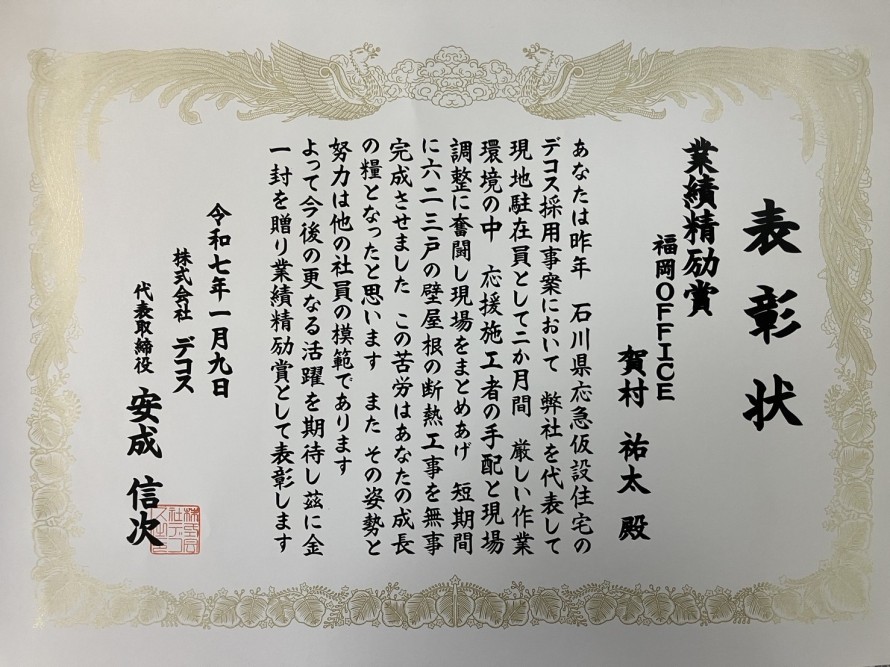 表彰状
業績精励賞
福岡OFFICE
賀村 祐太 殿
あなたは昨年 石川県応急仮設住宅の
デコス採用事案において 弊社を代表して
現地駐在員として二か月間 厳しい作業
環境の中 応援施工者の手配と現場
調整に奮闘し現場をまとめあげ 短期間
に六二三戸の壁屋根の断熱工事を無事
完成させました この苦労はあなたの成長
の糧となったと思います また その姿勢と
努力は他の社員の模範であります
よって今後の更なる活躍を期待し茲に金
一封を贈り業績精励賞として表彰します
令和七年一月九日
株式会社 デコス
代表取締役 安成 信次